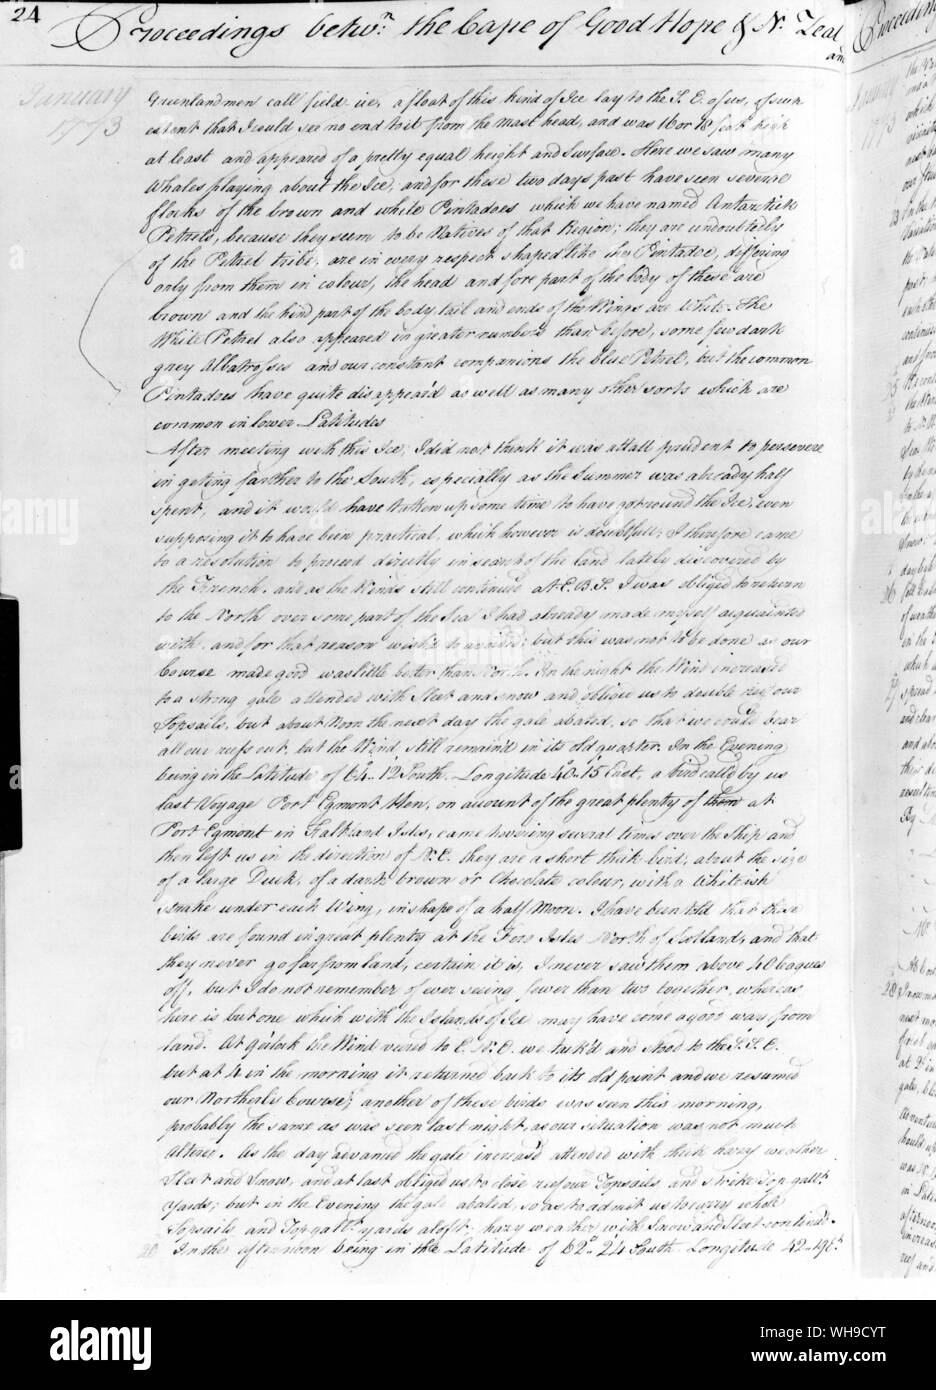 24
Proceedings betwn. the Cape of Good Hope & Nw. Zeal
and
January
1773
Greenlandmen call field ice, a float of this kind of Ice lay to the S. E. of us, of such
extent that I could see no end to it from the Mast head, and was 16 or 18 feet high
at least and appeared of a pretty equal height and Surface. Here we saw many
Whales playing about the Ice, and for these two days past have seen several
flocks of the brown and white Pintadoes which we have named Antarctick
Petrels, because they seem to be Natives of that Region; they are undoubtedly
of the Petrel tribe, are in every respect shaped like the Pintadoe, differing
only from them in colour, the head and fore part of the body of these are
brown and the hind part of the body, tail and ends of the Wings are White. The
White Petrel also appeared in greater numbers than before, some few dark
grey Albatrosses and our constant companions the blue Petrel, but the common
Pintadoes have quite disappear'd as well as many other sorts which are
common in lower Latitudes
After meeting with this Ice, I did not think it was attall prudent to persevere
in geting farther to the South, especially as the Summer was already half
spent, and it would have taken up some time to have got round the Ice, even
supposing it to have been practical, which however is doubtfull; I therefore came
to a resolution to proceed directly in search of the land lately discovered by
the French. and as the Winds still continued at E. B. S. I was obliged to return
to the North over some part of the Sea I had already made myself acquainted
with, and for that reason wish'd to avoid it; but this was not to be done as our
Course made good was little better than North. In the night the Wind increased
to a strong gale attended with Sleet and snow and obliged us to double reef our
Topsails, but about Noon the next day the gale abated, so that we could bear
all our reefs out, but the Wind still remain'd in its old quarter. In the Evening
being in the Latitude of 64°.. 12' South, Longitude 40°.. 15' East, a bird called by us
last Voyage Port Egmont Hen, on account of the great plenty of them at
Port Egmont in Falkland Isles, came hovering several times over the Ship and
then left us in the direction of N. E. they are a short thick bird, about the size
of a large Duck, of a dark brown or Chocolate colour, with a Whiteish
streake under each Wing, in shape of a half Moon. I have been told that these
birds are found in great plenty at the Fero Isles North of Scotland, and that
they never go far from land, certain it is, I never saw them above 40 leagues
off, but I do not remember of ever seeing fewer than two together, whereas
here is but one which with the Islands of Ice may have come a good way from
land. At 9 o'clock the Wind veered to E. N. E. we tack'd and stood to the S. S. E.
but at 4 in the morning it returned back to its old point and we resumed
our Northerly Course; another of these birds was seen this morning,
probably the same as was seen last night, as our situation was not much
Altered. As the day advanced the gale increas'd attended with thick hazy weather
Sleet and Snow, and at last obliged us to close reef our Topsails and strike Top gallt.
yards; but in the Evening the gale abated, so as to admit us to carry whole
Topsails and Top gallt. yards aloft; hazy weather with Snow and Sleet continued.
20 In the afternoon being in the Latitude of 62°.. 24' South Longitude 42..19 Et.
alamy
WH9CYT
www.alamy.com